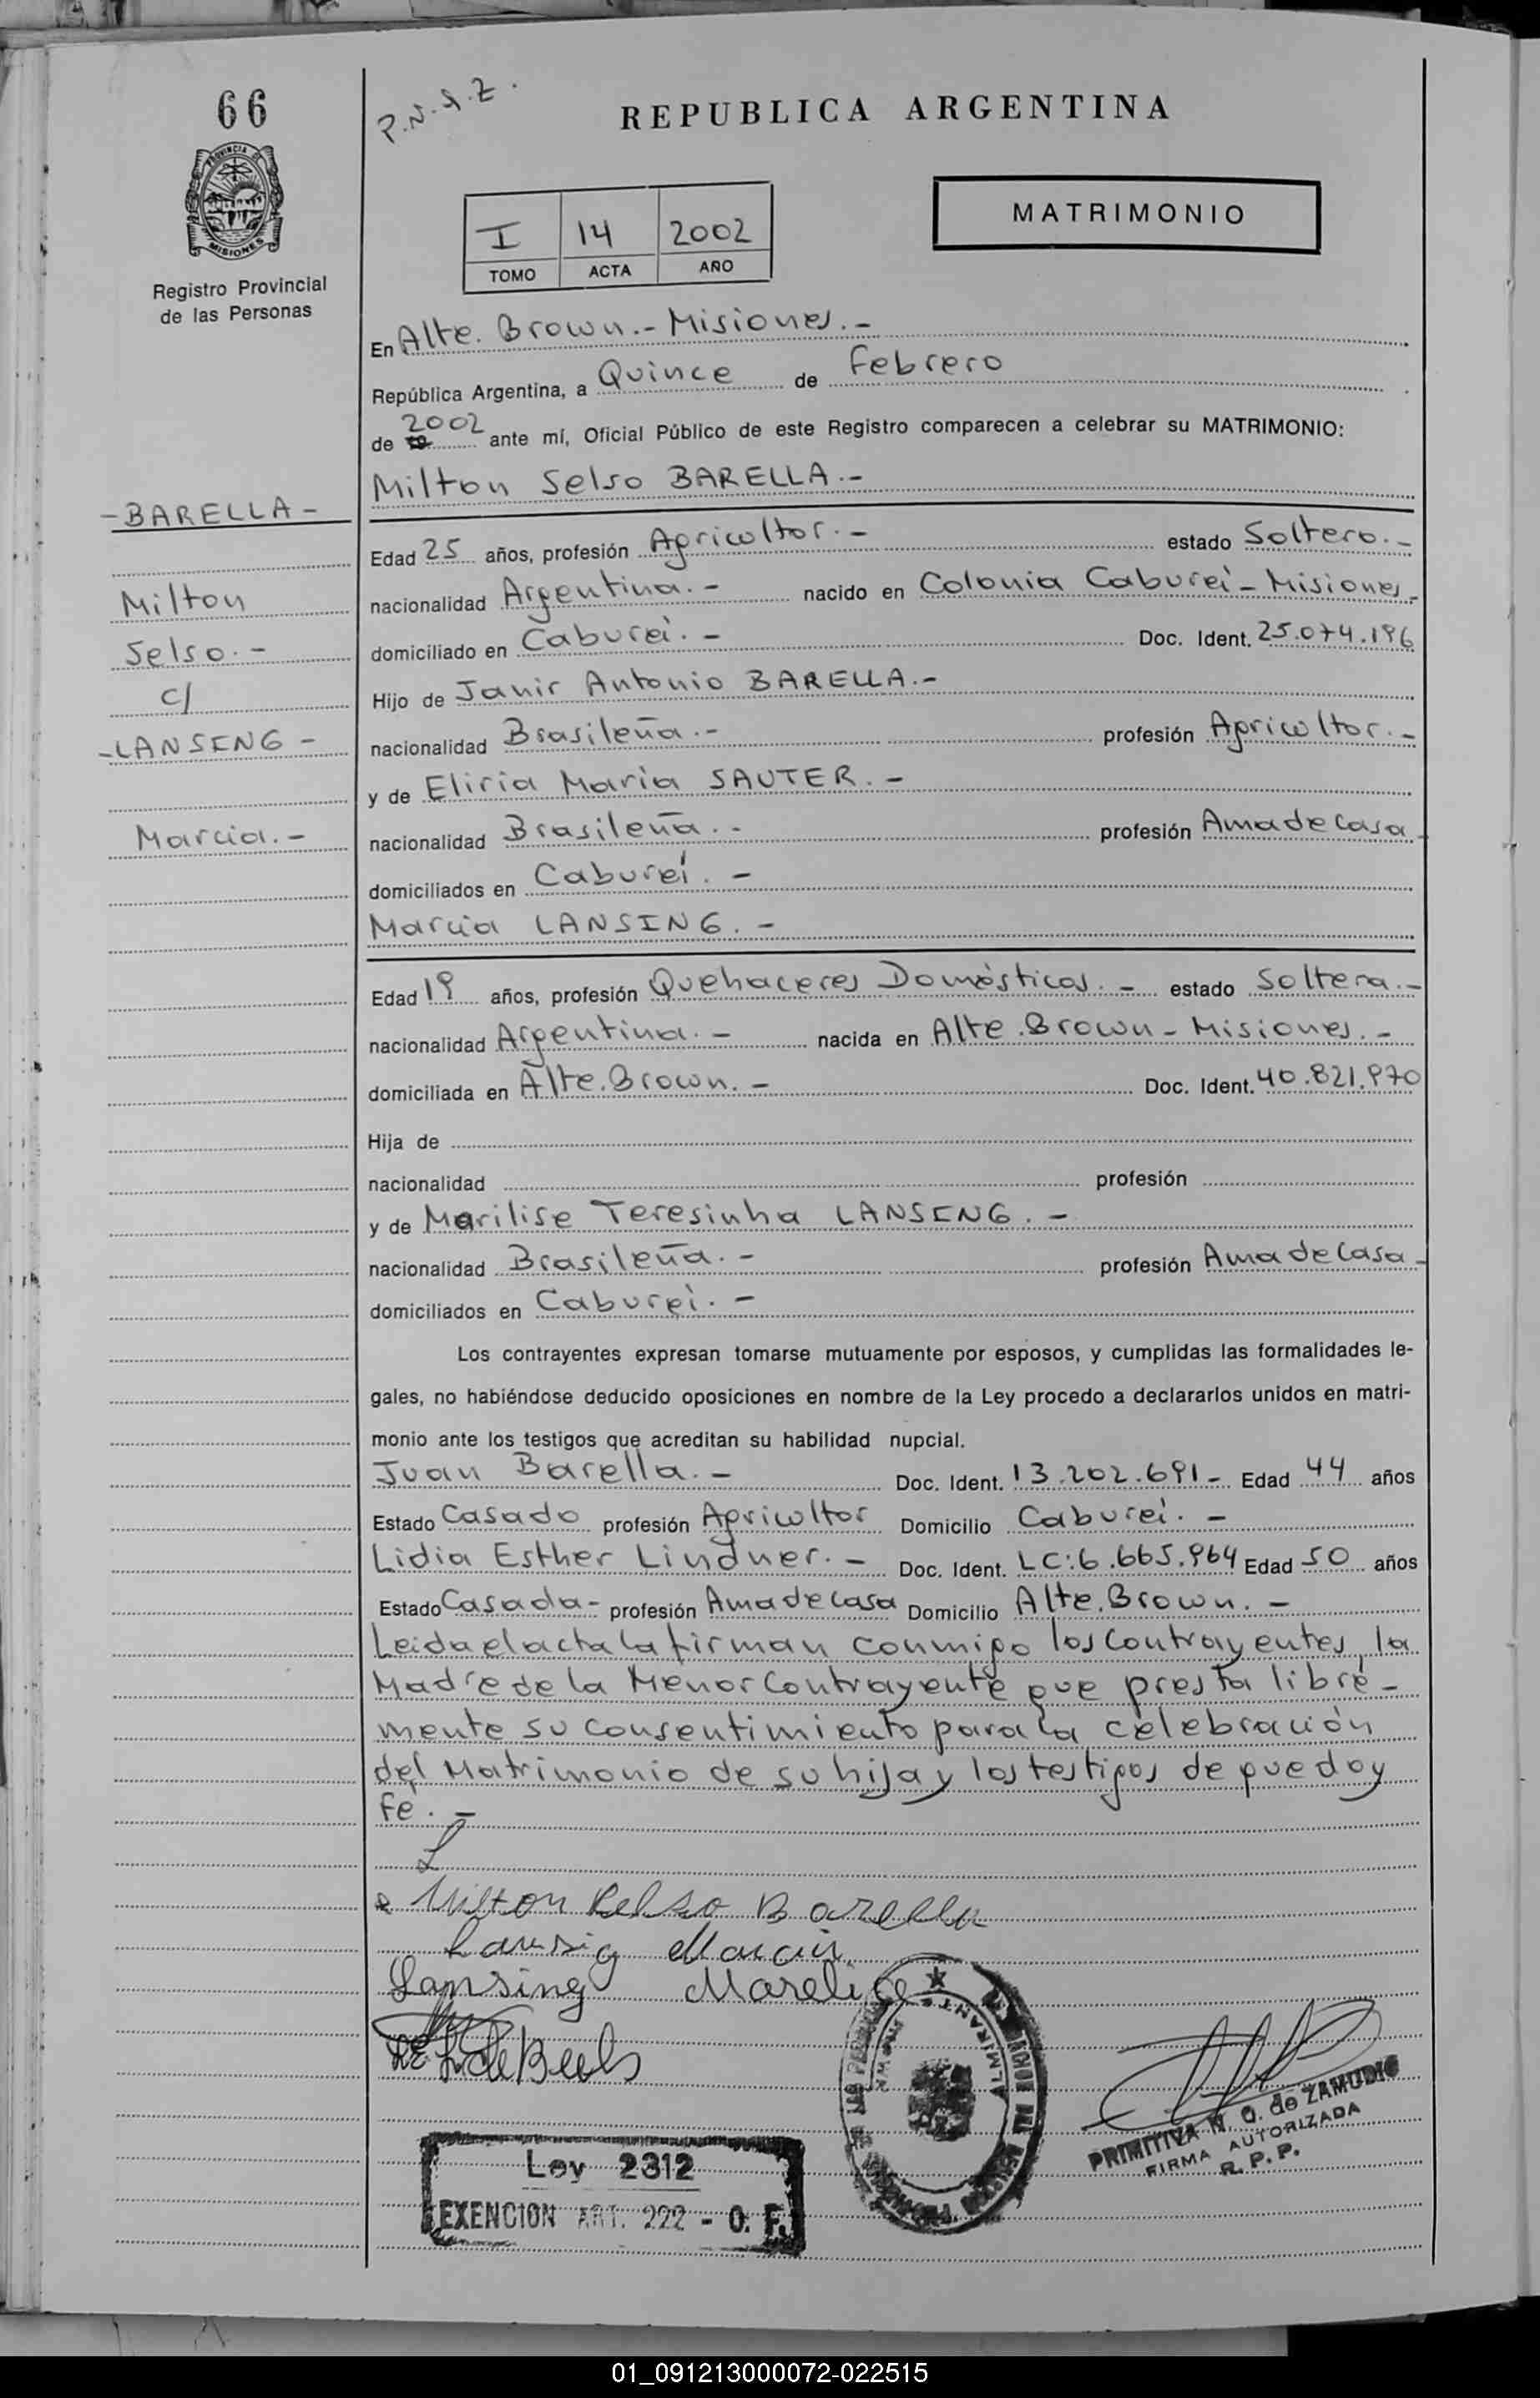 66
P.N.A.Z.
REPUBLICA ARGENTINA
PROVINCIA DE
MISIONES
Registro Provincial
de las Personas
I 14 2002
TOMO ACTA AÑO
MATRIMONIO
En Alte. Brown.- Misiones.-
República Argentina, a Quince de Febrero
de 2002 ante mí, Oficial Público de este Registro comparecen a celebrar su MATRIMONIO:
Milton Selso BARELLA.-
- BARELLA -
Milton
Selso.-
c/
- LANSING -
Marcia.-
Edad 25 años, profesión Agricultor.- estado Soltero.-
nacionalidad Argentina.- nacido en Colonia Caburei - Misiones-
domiciliado en Caburei.- Doc. Ident. 25.074.196
Hijo de Janir Antonio BARELLA.-
nacionalidad Brasileña.- profesión Agricultor.-
y de Eliria Maria SAUTER.-
nacionalidad Brasileña.- profesión Ama de Casa-
domiciliados en Caburei.-
Marcia LANSING.-
Edad 19 años, profesión Quehaceres Domésticos.- estado Soltera.-
nacionalidad Argentina.- nacida en Alte. Brown - Misiones.-
domiciliada en Alte. Brown.- Doc. Ident. 40.821.970
Hija de
nacionalidad profesión
y de Marilise Teresinha LANSING.-
nacionalidad Brasileña.- profesión Ama de Casa-
domiciliados en Caburei.-
Los contrayentes expresan tomarse mutuamente por esposos, y cumplidas las formalidades le-
gales, no habiéndose deducido oposiciones en nombre de la Ley procedo a declararlos unidos en matri-
monio ante los testigos que acreditan su habilidad nupcial.
Juan Barella.- Doc. Ident. 13.202.691- Edad 44 años
Estado Casado profesión Agricultor Domicilio Caburei.-
Lidia Esther Lindner.- Doc. Ident. LC:6.665.964 Edad 50 años
Estado Casada- profesión Ama de casa Domicilio Alte. Brown.-
Leida el acta la firman conmigo los Contrayentes, la
Madre de la Menor Contrayente que presta libre-
mente su consentimiento para la celebración
del Matrimonio de su hija y los testigos de que doy
fé.-
Milton Selso Barella
Lansig Marcia
Lansing Marelise
ALMIRANTE BROWN
PRIMITIVA N. Q. de ZAMUDIO
FIRMA AUTORIZADA
R. P. P.
Ley 2312
EXENCION ART. 222 - O. F.
01_091213000072-022515